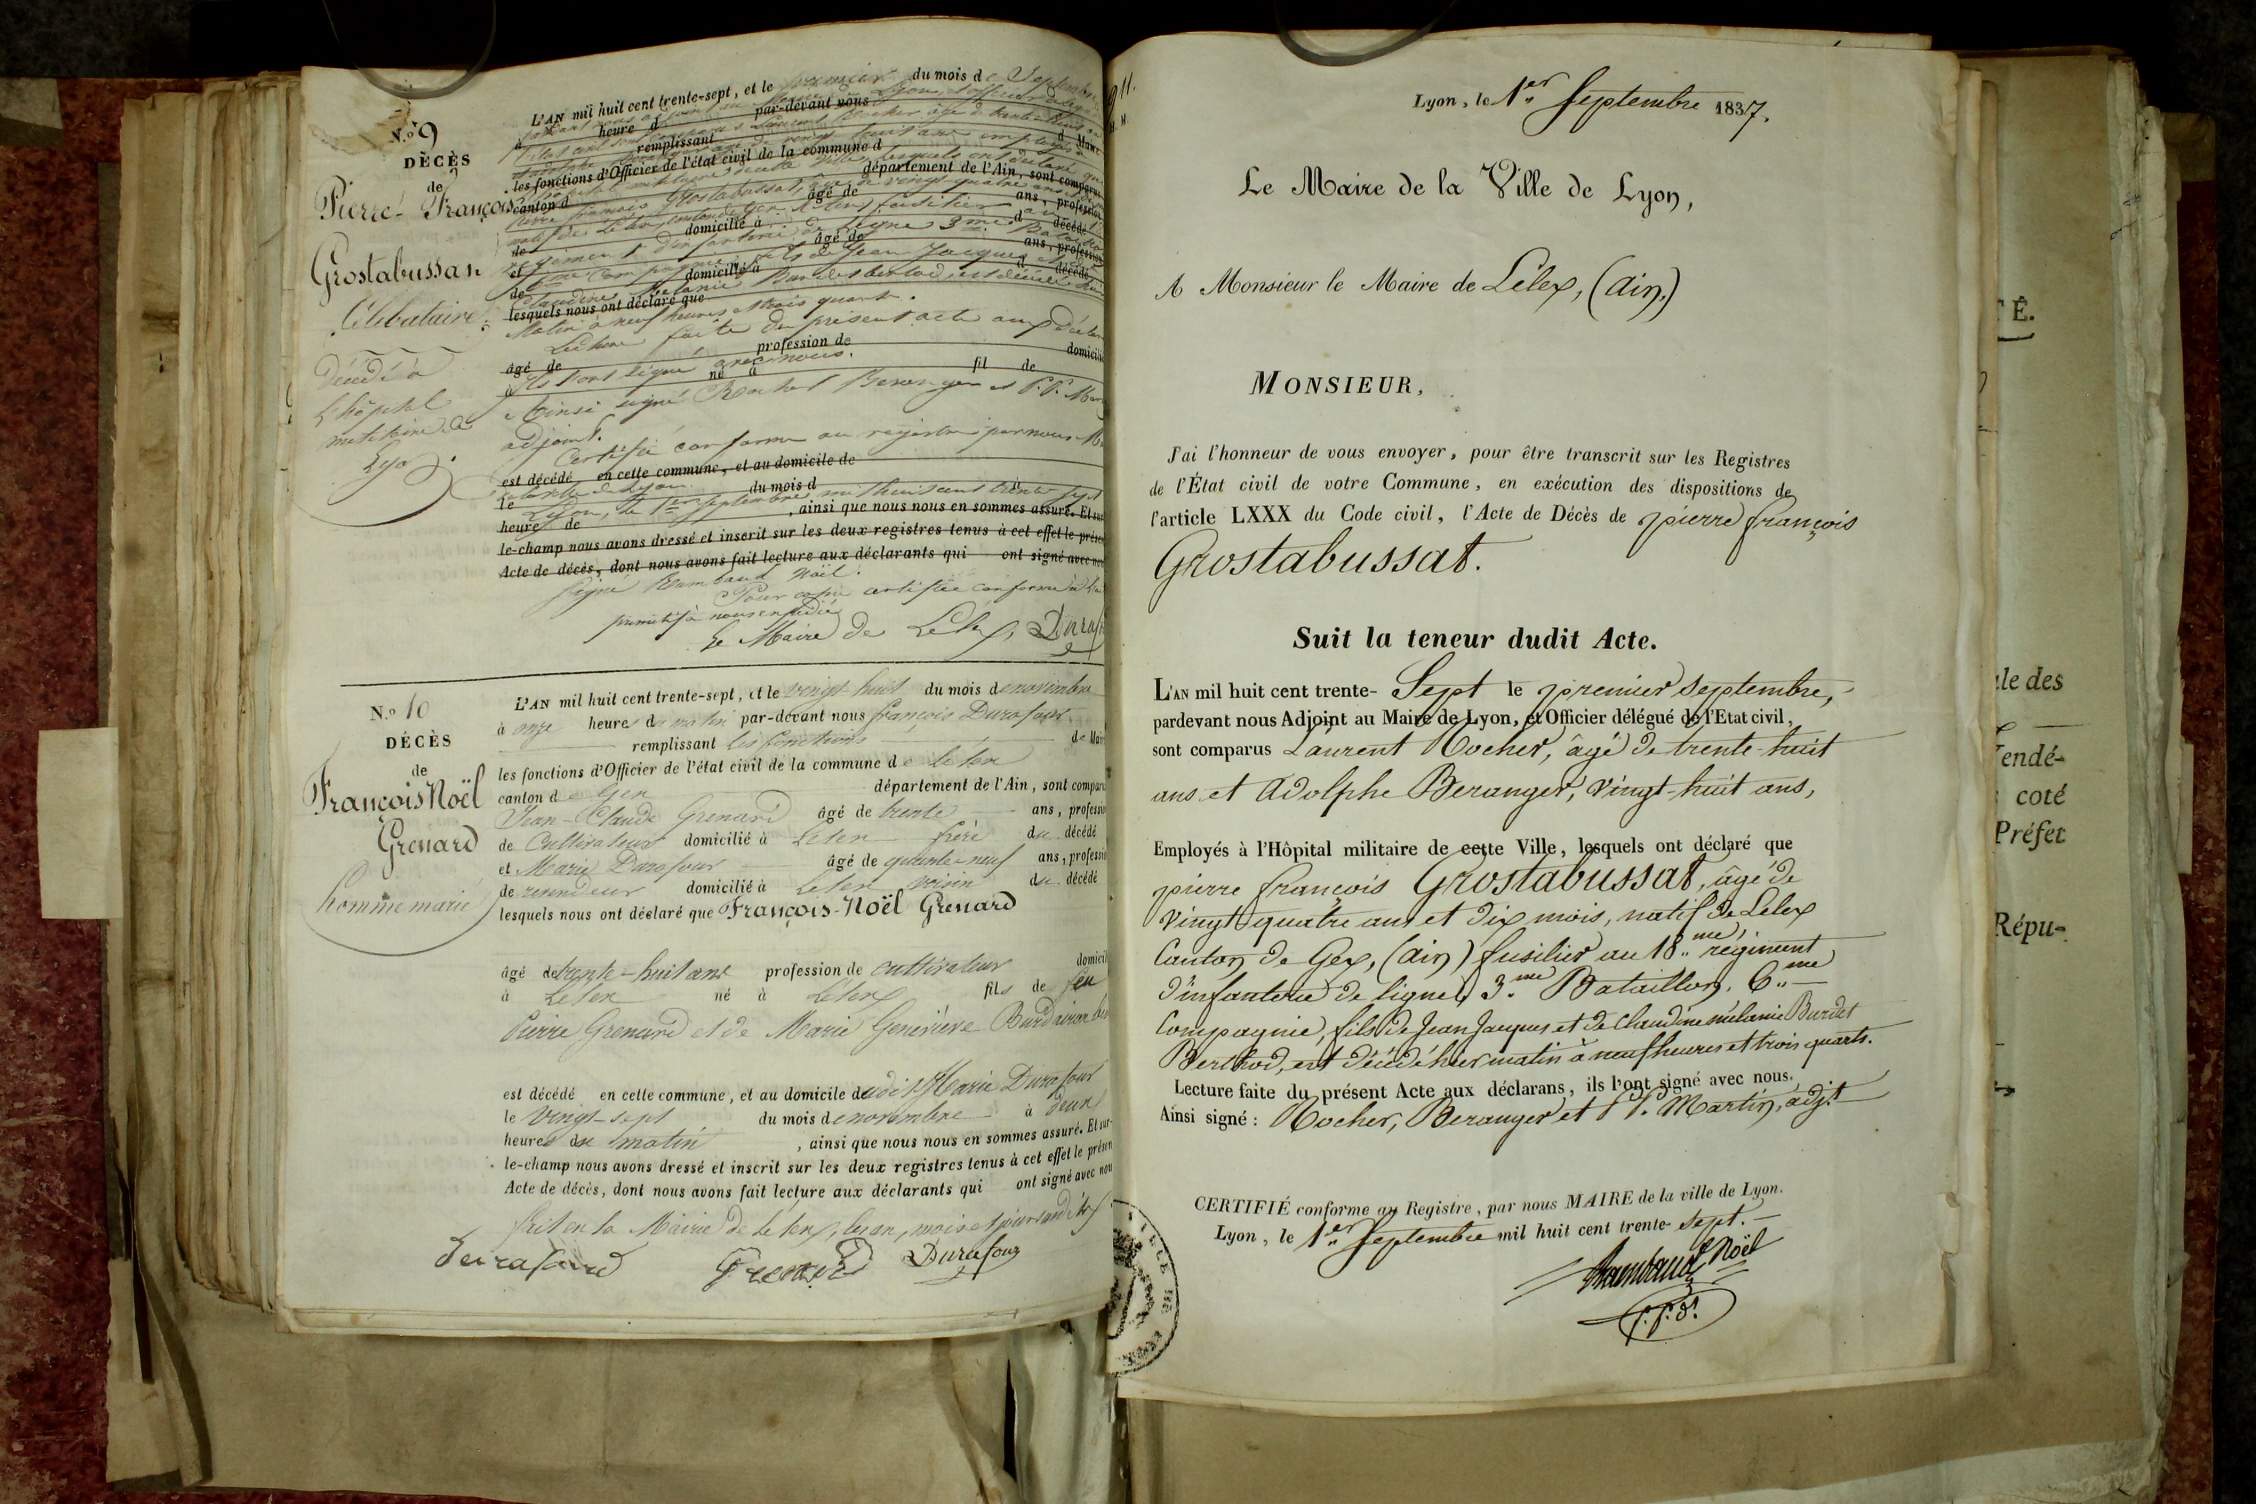 N.º 9
DÉCÈS
de
Pierre-François
Grostabussat
Célibataire
Décédé à
l'hôpital
militaire de
Lyon
L'AN mil huit cent trente-sept, et le premier du mois de Septembre
heure d par-devant nous
remplissant d Maire
les fonctions d'Officier de l'état civil de la commune d
canton d département de l'Ain, sont comparus
Pierre françois Grostabussat, âgé de vingt quatre ans
âgé de ans, profession
natif de Lélex, canton de Gex fusilier au
de domicilié à d décédé
régiment d'infanterie de ligne 3me Bataillon
et âgé de ans, profession
6me compagnie, fils de Jean Jacques et de
de domicilié à d décédé
Claudine Mélanie Burdet berthod, est décédé hier
lesquels nous ont déclaré que
Matin à neuf heures trois quart.
Lecture faite du présent acte aux déclarans
âgé de profession de domicilié
ils l'ont signé avec nous.
à né à fil de
Ainsi signé Rocher Beranger et P.P. Martin
adjoint.
Certifié conforme au registre par nous Maire
est décédé en cette commune, et au domicile de
de la ville de Lyon
le du mois d à
Lyon, le 1er septembre mil huit cent trente sept
heure de , ainsi que nous nous en sommes assuré. Et sur-
le-champ nous avons dressé et inscrit sur les deux registres tenus à cet effet le présent
Acte de décès, dont nous avons fait lecture aux déclarants qui ont signé avec nous
Signé Rambaud Noël.
Pour copie certifiée conforme à la
primitif à nous expédiée
Le Maire de Lélex, Durafour
N.º 10
DÉCÈS
de
François Noël
Grenard
homme marié
L'AN mil huit cent trente-sept, et le vingt huit du mois de novembre
à onze heures du matin par-devant nous françois Durafour
remplissant les fonctions de Maire
les fonctions d'Officier de l'état civil de la commune de Lelex
canton de Gex département de l'Ain, sont comparus
Jean-Claude Grenard âgé de trente ans, profession
de Cultivateur domicilié à Lelex frère du décédé
et Marie Durafour âgé de quarante-neuf ans, profession
de revendeur domicilié à Lelex voisin du décédé
lesquels nous ont déclaré que François-Noël Grenard
âgé de trente-huit ans profession de cultivateur domicilié
à Lelex né à Lélex fils de feu
Pierre Grenard et de Marie Geneviève
est décédé en cette commune, et au domicile dudit Marie Durafour
le vingt-sept du mois de novembre à deux
heures du matin, ainsi que nous nous en sommes assuré. Et sur-
le-champ nous avons dressé et inscrit sur les deux registres tenus à cet effet le présent
Acte de décès, dont nous avons fait lecture aux déclarants qui ont signé avec nous
fait en la Mairie de Lelex, les an, mois et jour susdits
Durafour Grenard Durafour
Lyon, le 1er Septembre 1837.
Le Maire de la Ville de Lyon,
A Monsieur le Maire de Lélex, (Ain)
MONSIEUR,
J'ai l'honneur de vous envoyer, pour être transcrit sur les Registres
de l'État civil de votre Commune, en exécution des dispositions de
l'article LXXX du Code civil, l'Acte de Décès de pierre françois
Grostabussat.
Suit la teneur dudit Acte.
L'AN mil huit cent trente-Sept le premier septembre,
pardevant nous Adjoint au Maire de Lyon, et Officier délégué de l'Etat civil,
sont comparus Laurent Rocher, âgé de trente-huit
ans et Adolphe Beranger, vingt-huit ans,
Employés à l'Hôpital militaire de cette Ville, lesquels ont déclaré que
pierre françois Grostabussat, âgé de
vingt quatre ans et dix mois, natif de Lélex
Canton de Gex, (Ain) fusilier au 18me régiment
d'infanterie de ligne, 3me Bataillon, 6me
Compagnie, fils de Jean Jacques et de Claudine mélanie Burdet
Berthod, est décédé hier matin à neuf heures et trois quarts.
Lecture faite du présent Acte aux déclarans, ils l'ont signé avec nous.
Ainsi signé : Rocher, Beranger et P.P. Martin, adjt
CERTIFIÉ conforme au Registre, par nous MAIRE de la ville de Lyon.
Lyon, le 1er Septembre mil huit cent trente-sept.
Rambaud Noël
TÉ.
ale des
Vendé-
coté
Préfet
Répu-